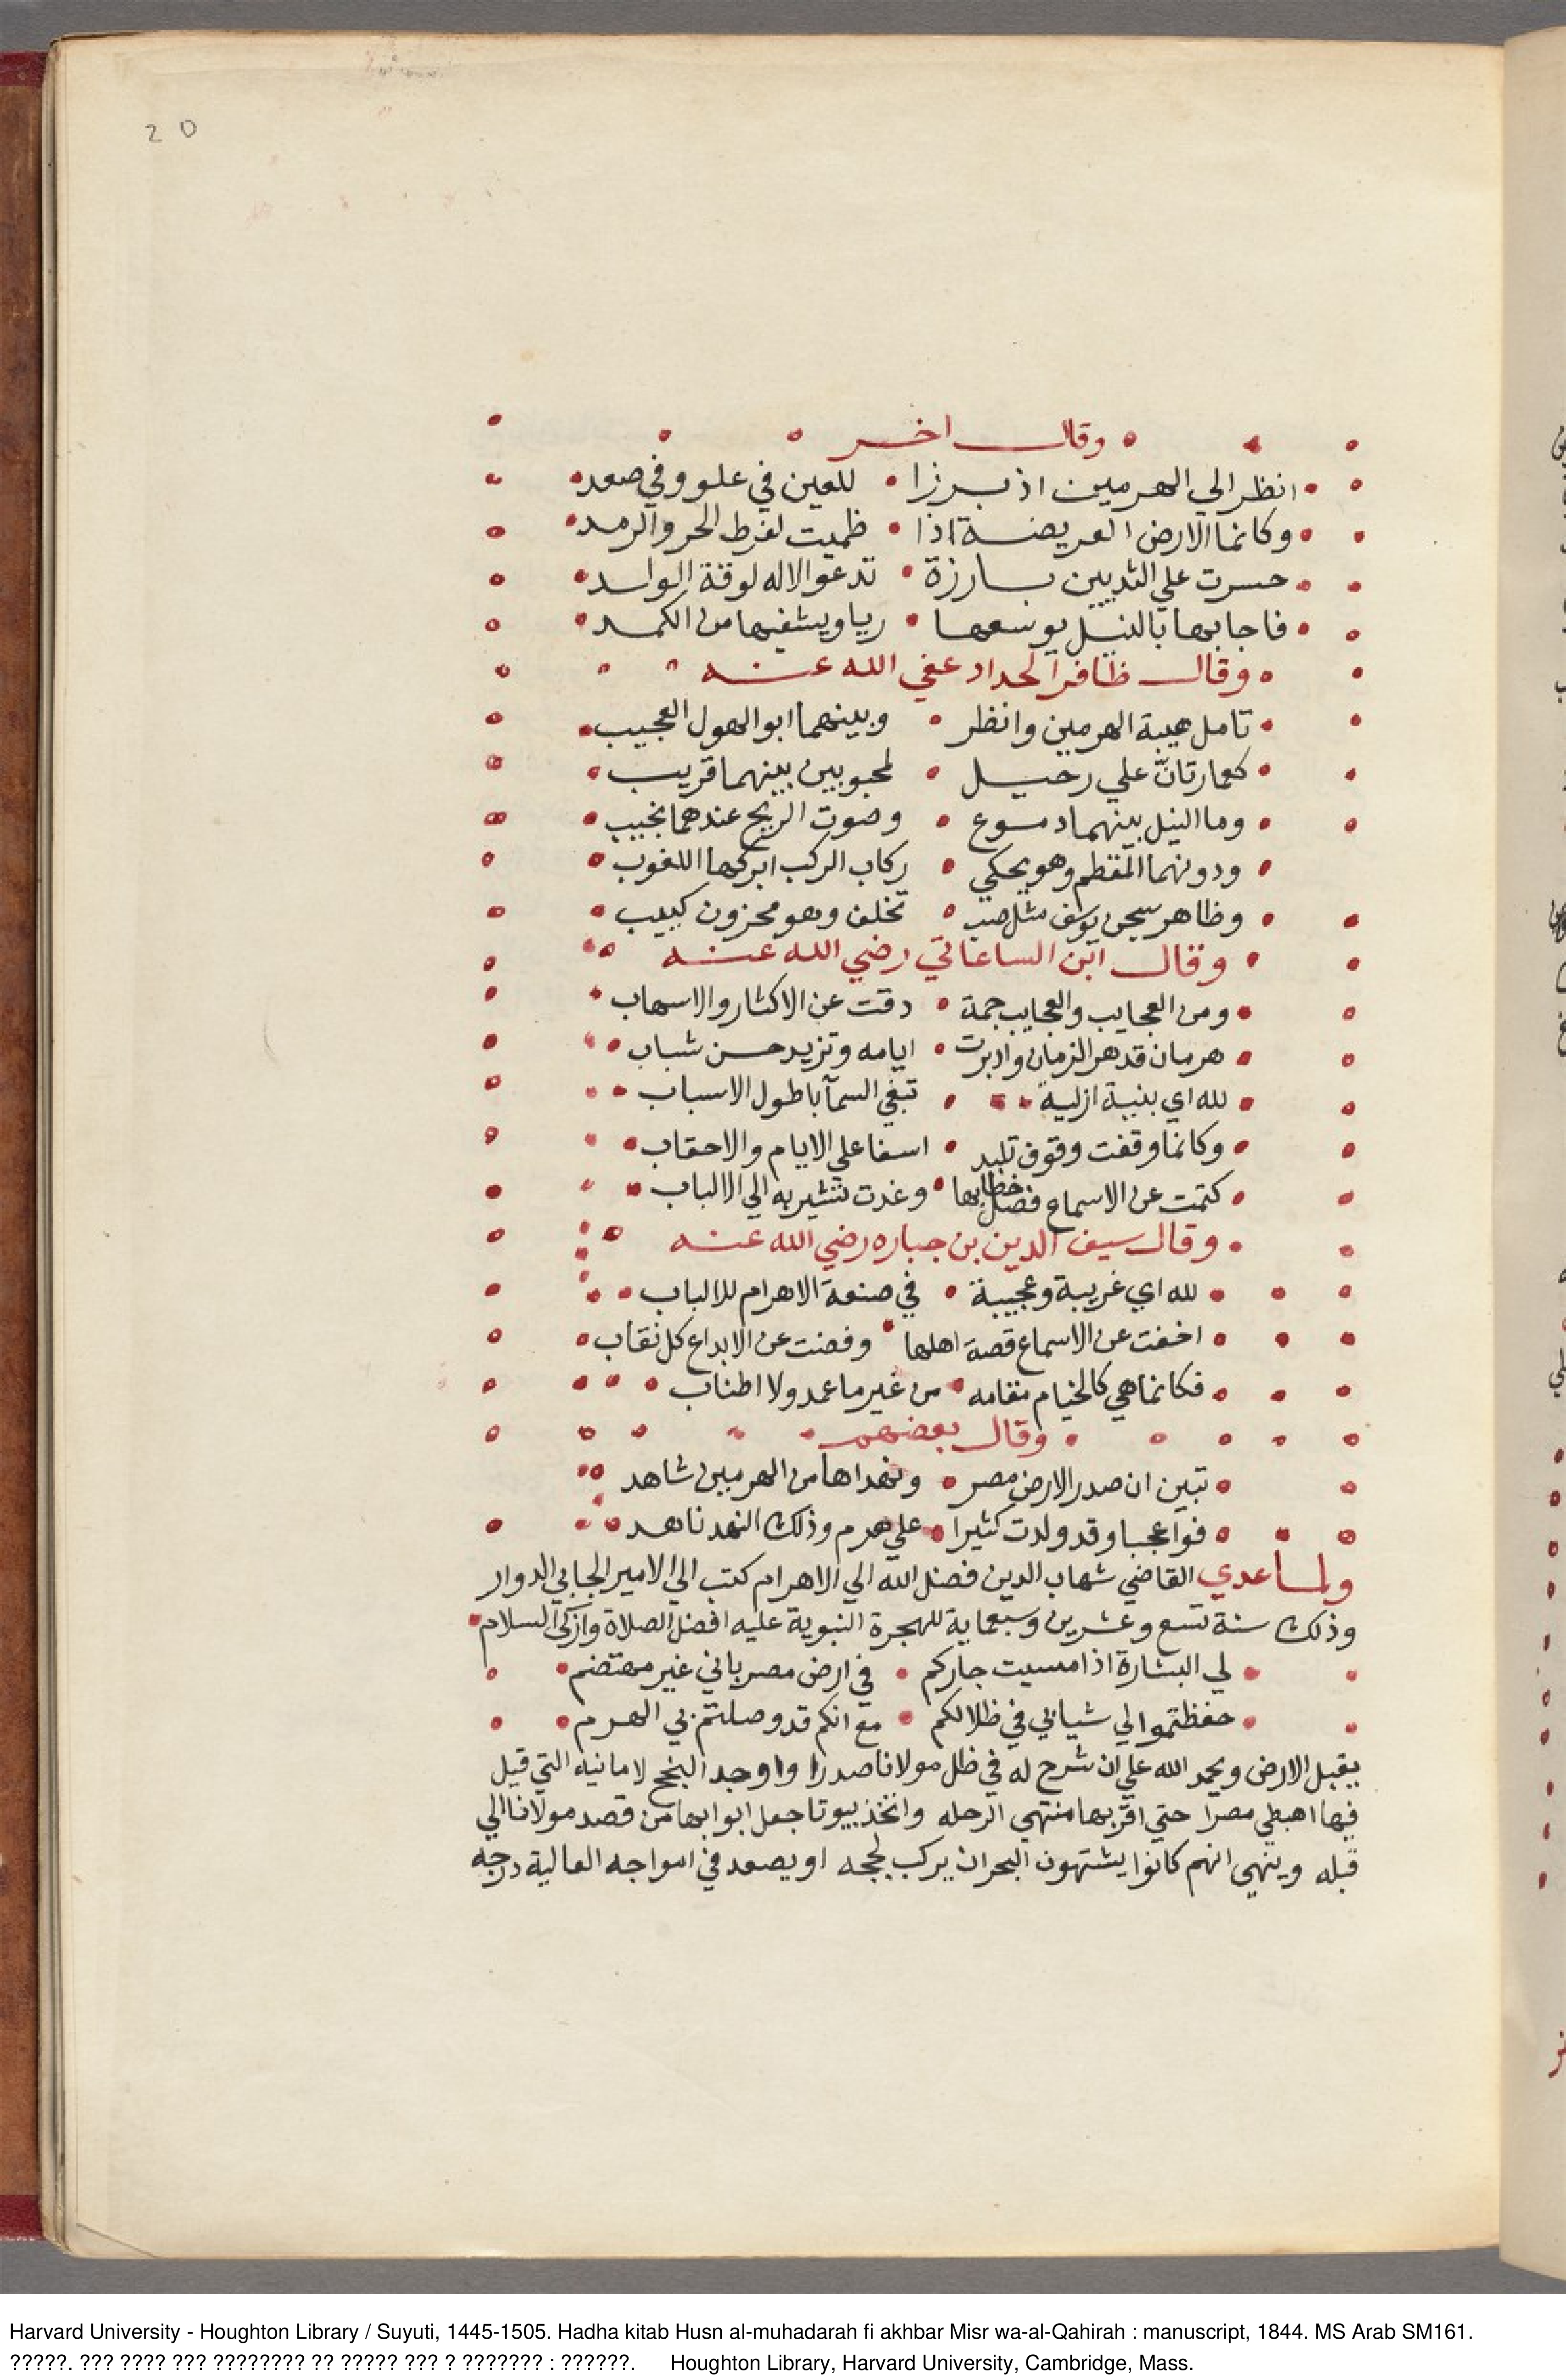 20
وقال اخر
انظر الي الهرمين اذ برزا • للعين في علو وفي صعد
وكانما الارض العريضة اذا • ظميت لفرط الحر والرمد
حسرت علي الثديين بارزة • تدعو الاله لوقة الولد
فاجابها بالنيل يوسعها • ريا ويشفيها من الكمد
وقال ظافر الحداد عفي الله عنه
تامل هيبة الهرمين وانظر • وبينهما ابو الهول العجيب
كعمارتان علي رحيل • لمحبوبين بينهما قريب
وما النيل بينهما دموع • وصوت الريح عندهما نحيب
ودونهما المقطم وهو يحكي • ركاب الركب ابركها اللغوب
وظاهر سجن يوسف مثل صب • تخلف وهو محزون كييب
وقال ابن الساعاتي رضي الله عنه
ومن العجايب والعجايب جمة • دقت عن الاكثار والاسهاب
هرمان قد هر الزمان وادبرت • ايامه وتزيد حسن شباب
لله اي بنية ازلية • تبغي السمآ باطول الاسباب
وكانما وقفت وقوف تلبد • اسفا علي الايام والاحقاب
كتمت عن الاسماع فصل خطابها • وغدت تشير به الي الالباب
وقال سيف الدين بن جباره رضي الله عنه
لله اي غريبة وعجيبة • في صنعة الاهرام للالباب
اخفت عن الاسماع قصة اهلها • وفضت عن الابداع كل نقاب
فكانما هي كالخيام مقامه • من غير ما عمد ولا اطناب
وقال بعضهم
تبين ان صدر الارض مصر • ونهداها من الهرمين شاهد
فوآعجبا وقد ولدت كثيرا • علي هرم وذلك النهد ناهد
ولما عدي القاضي شهاب الدين فضل الله الي الاهرام كتب الي الامير الجابي الدوار
وذلك سنة تسع وعشرين وسبعماية للهجرة النبوية عليه افضل الصلاة وازكي السلام
لي البشارة اذ امسيت جاركم • في ارض مصر باني غير مهتضم
حفظتموا لي شيابي في ظلالكم • مع انكم قد وصلتم بي الهرم
يقبل الارض ويحمد الله علي ان شرح له في ظل مولانا صدرا واوجد النجح لامانيه التي قيل
فيها اهبطي مصرا حتي اقربها منتهي الرحله واتخذ بيوتا جعل ابوابها من قصد مولانا الي
قبله وينهي انهم كانوا يشتهون البحر ان يركب لججه او يصعد في امواجه العالية درجه
Harvard University - Houghton Library / Suyuti, 1445-1505. Hadha kitab Husn al-muhadarah fi akhbar Misr wa-al-Qahirah : manuscript, 1844. MS Arab SM161.
?????. ??? ???? ??? ???????? ?? ????? ??? ? ??????? : ??????. Houghton Library, Harvard University, Cambridge, Mass.